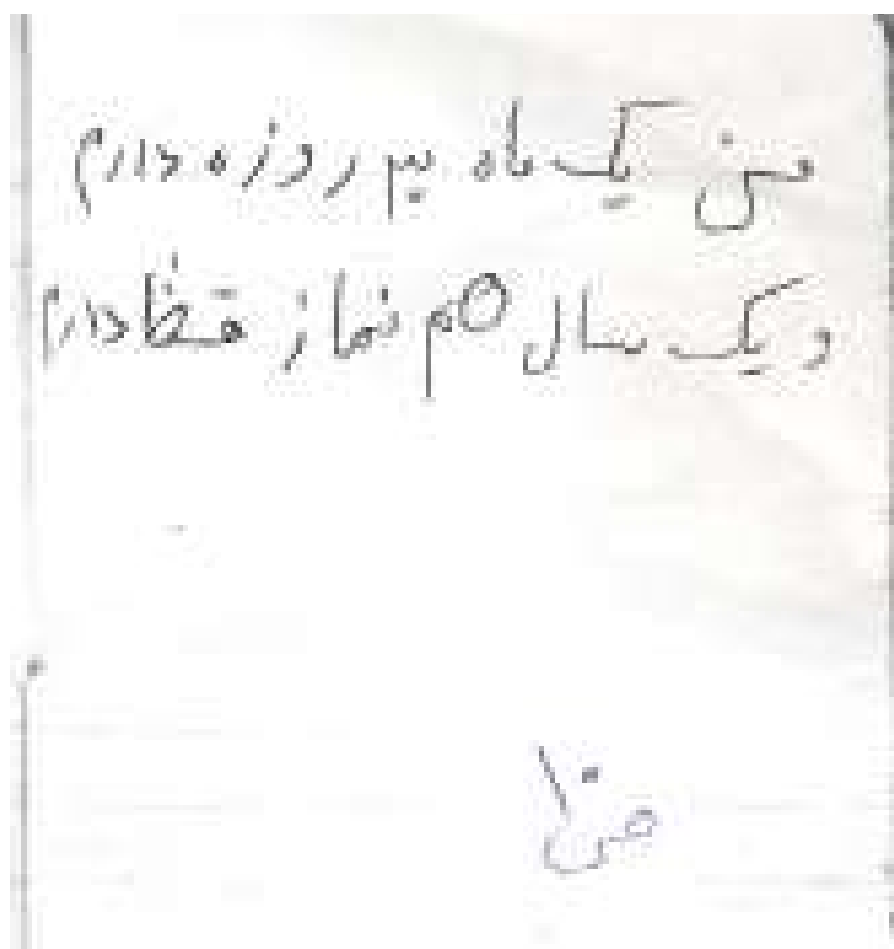 من یک ماه یم روزه دارم
و یک سال هم نماز قظا دارم